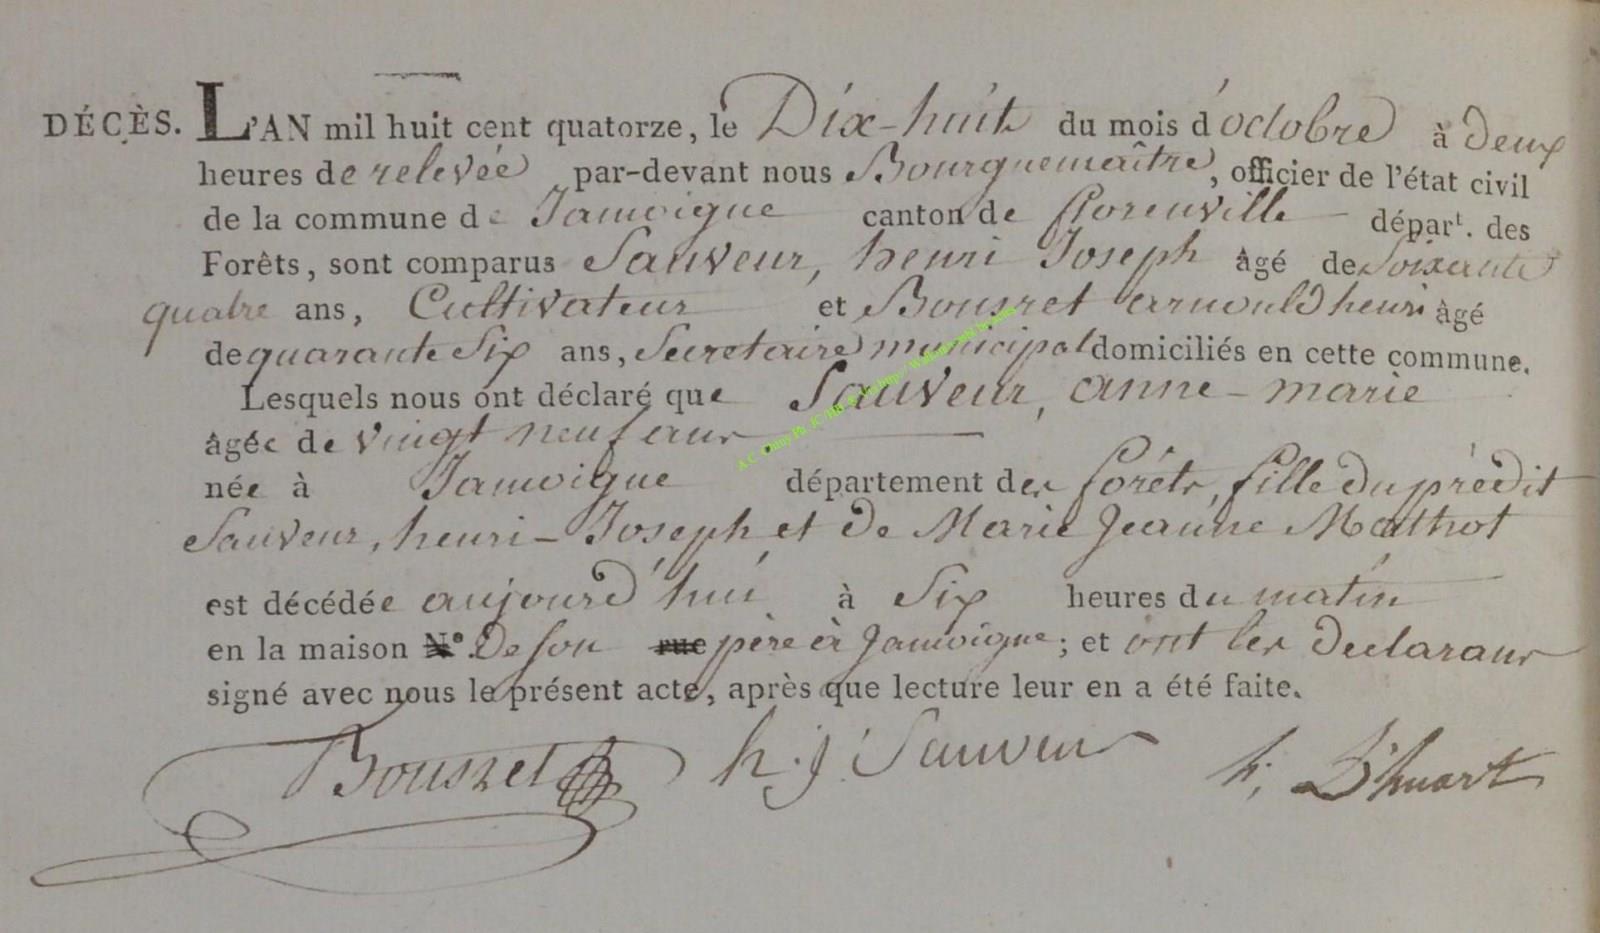 DÉCÈS. L'AN mil huit cent quatorze, le Dix-huit du mois d'octobre à deux
heures de relevée par-devant nous Bourguemaître, officier de l'état civil
de la commune de Jamoigne canton de florenville départ. des
Forêts, sont comparus Sauveur, henri Joseph âgé de Soixante
quatre ans, Cultivateur et Bousret arnould henri âgé
de quarante Six ans, Secretaire municipal domiciliés en cette commune.
Lesquels nous ont déclaré que Sauveur, anne-marie
âgée de vingt neuf ans
née à Jamoigne département des forêts, fille du prédit
Sauveur, henri-Joseph et de Marie Jeanne Mathot
est décédée aujourd'hui à Six heures du matin
en la maison N° De son rue père à Jamoigne; et ont les declarans
signé avec nous le présent acte, après que lecture leur en a été faite.
Bousret h. j. Sauveur h. D'huart